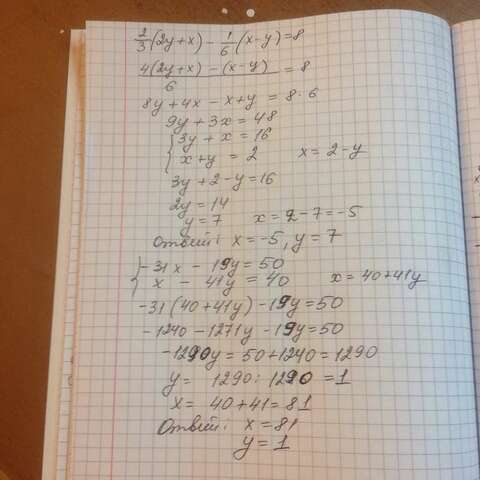 2/3(2y+x) - 1/6(x-y)=8
4(2y+x) - (x-y) / 6 = 8
8y+4x - x+y = 8·6
9y+3x=48
{ 3y+x=16
{ x+y = 2 x=2-y
3y+2-y=16
2y=14
y=7 x=2-7=-5
Ответ: x=-5, y=7
{ -31x - 19y=50
{ x - 41y = 40 x=40+41y
-31(40+41y)-19y=50
-1240-1271y-19y=50
-1290y=50+1240=1290
y= 1290:1290=1
x= 40+41=81
Ответ: x=81
y=1